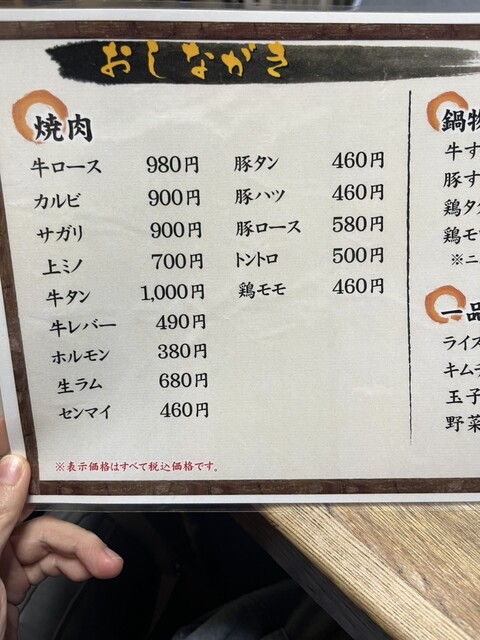 おしながき
焼肉
牛ロース 980円
カルビ 900円
サガリ 900円
上ミノ 700円
牛タン 1,000円
牛レバー 490円
ホルモン 380円
生ラム 680円
センマイ 460円
豚タン 460円
豚ハツ 460円
豚ロース 580円
トントロ 500円
鶏モモ 460円
※表示価格はすべて税込価格です。
鍋物
牛す
豚す
鶏タ
鶏モ
※ニ
一品
ライス
キムチ
玉子
野菜